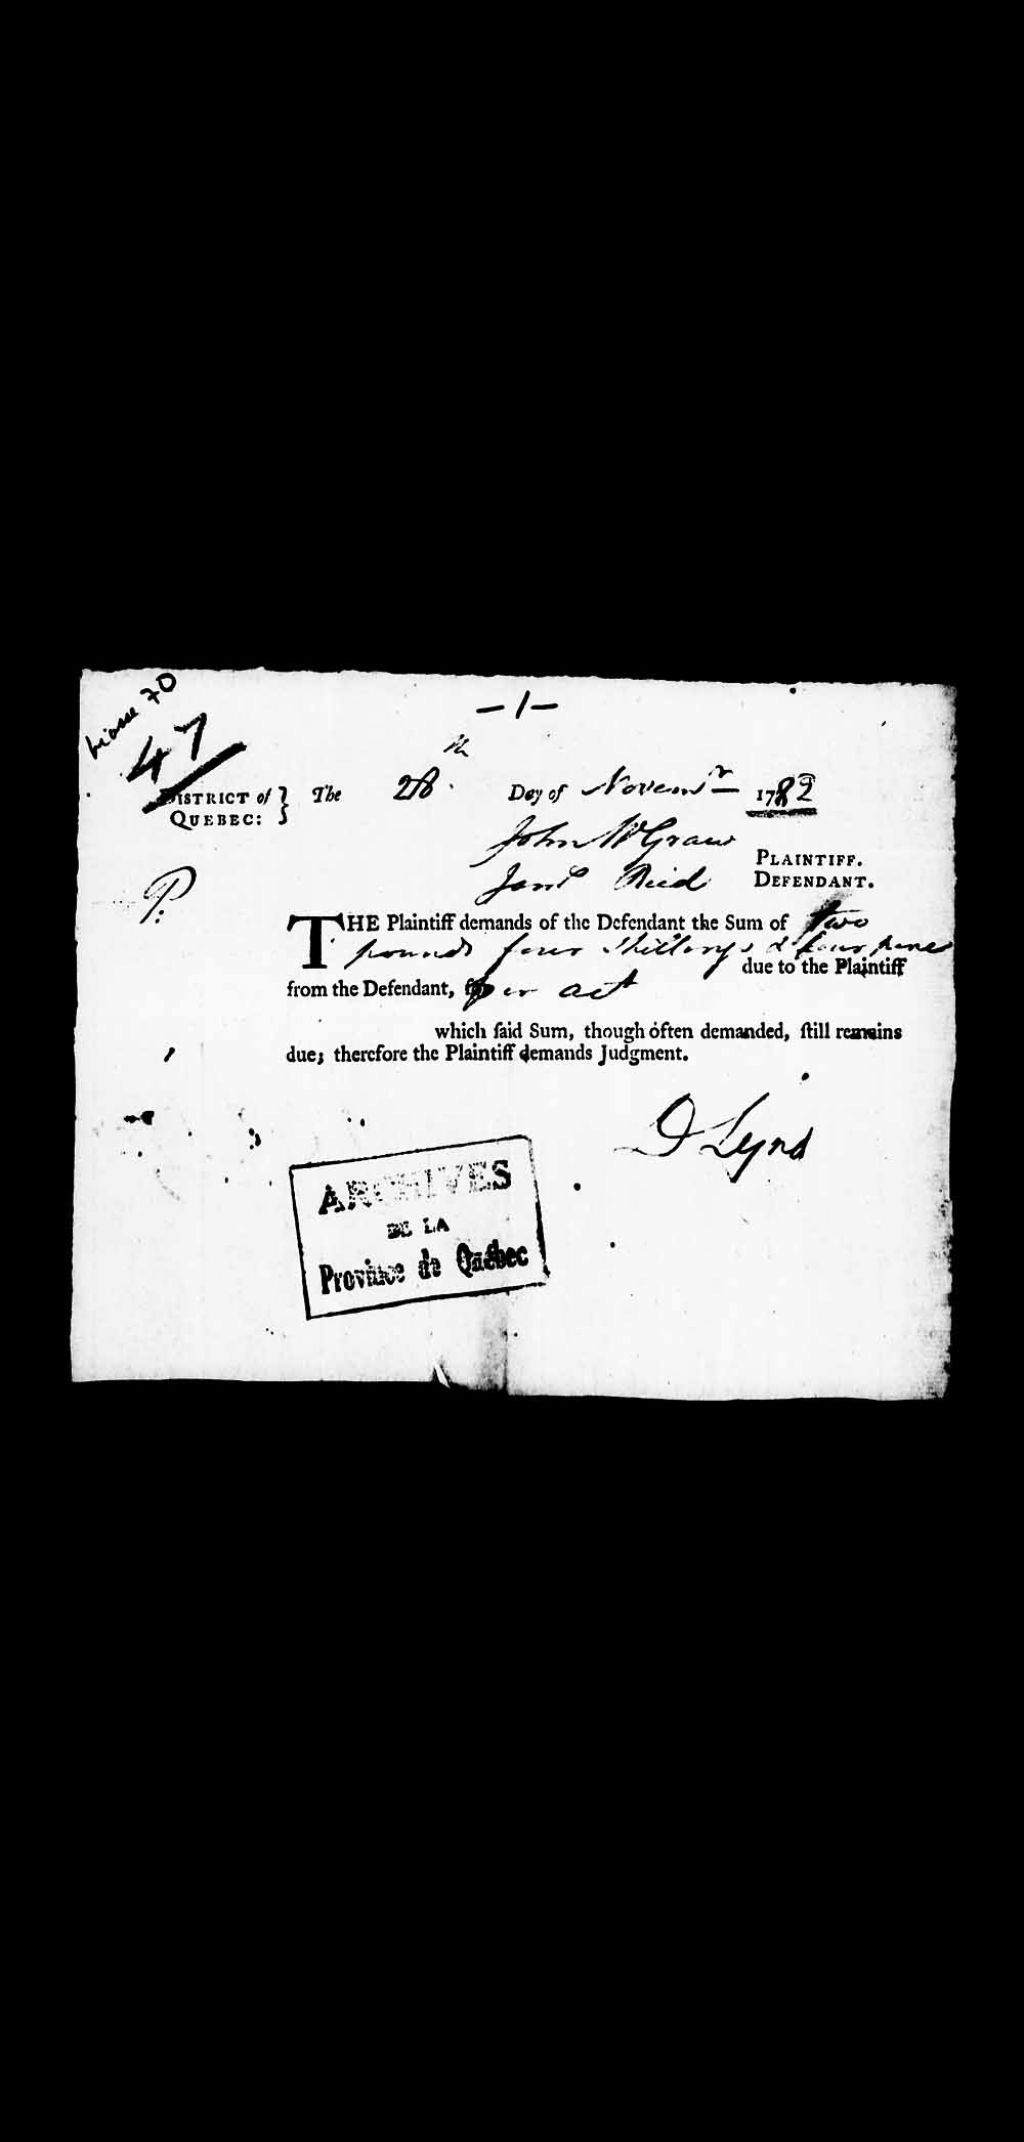 Liasse 70
47
-1-
DISTRICT of } The 28th. Day of Novemr 1782
QUEBEC:
John McGraw PLAINTIFF.
P. Jams Reid DEFENDANT.
THE Plaintiff demands of the Defendant the Sum of two
pounds four shillings & four pence
due to the Plaintiff
from the Defendant, per act
which ſaid Sum, though often demanded, ſtill remains
due; therefore the Plaintiff demands Judgment.
D Lynd
ARCHIVES
DE LA
Province de Québec